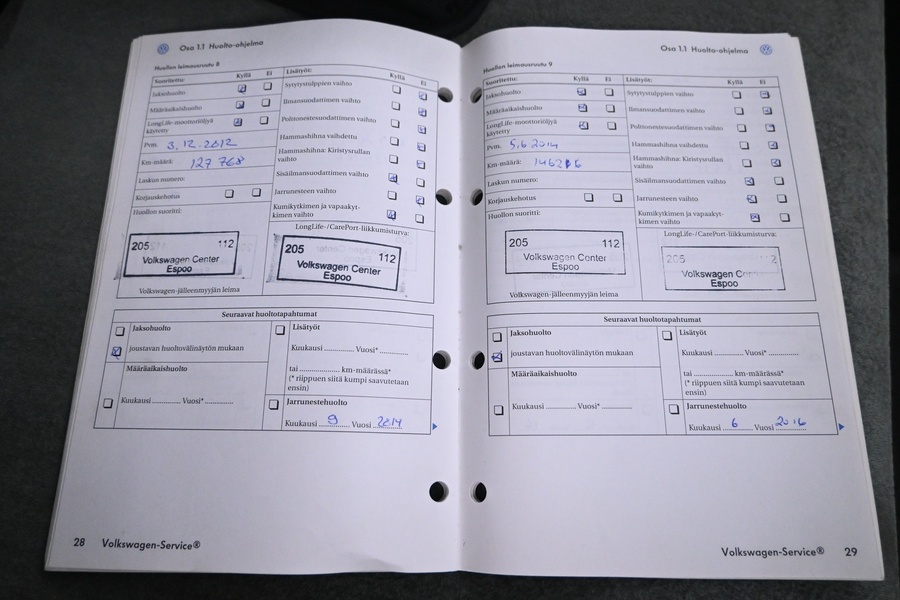 Osa 1.1 Huolto-ohjelma
Huollon leimausruutu 8
Suoritettu: Kyllä Ei
Jaksohuolto
Määräaikaishuolto
LongLife-moottoriöljyä
käytetty
Pvm. 3.12.2012
Km-määrä: 127 768
Laskun numero:
Korjauskehotus
Huollon suoritti:
205 112
Volkswagen Center
Espoo
Volkswagen-jälleenmyyjän leima
Lisätyöt: Kyllä Ei
Sytytystulppien vaihto
Ilmansuodattimen vaihto
Polttonestesuodattimen vaihto
Hammashihna vaihdettu
Hammashihna: Kiristysrullan
vaihto
Sisäilmansuodattimen vaihto
Jarrunesteen vaihto
Kumikytkimen ja vapaakyt-
kimen vaihto
LongLife-/CarePort-liikkumisturva:
205 112
Volkswagen Center
Espoo
Seuraavat huoltotapahtumat
Jaksohuolto
joustavan huoltovälinäytön mukaan
Määräaikaishuolto
Kuukausi ............. Vuosi* .............
Lisätyöt
Kuukausi ............. Vuosi* .............
tai .................. km-määrässä*
(* riippuen siitä kumpi saavutetaan
ensin)
Jarrunestehuolto
Kuukausi 9 Vuosi 2014
28 Volkswagen-Service®
Osa 1.1 Huolto-ohjelma
Huollon leimausruutu 9
Suoritettu: Kyllä Ei
Jaksohuolto
Määräaikaishuolto
LongLife-moottoriöljyä
käytetty
Pvm. 5.6.2014
Km-määrä:
Laskun numero:
Korjauskehotus
Huollon suoritti:
205 112
Volkswagen Center
Espoo
Volkswagen-jälleenmyyjän leima
Lisätyöt: Kyllä Ei
Sytytystulppien vaihto
Ilmansuodattimen vaihto
Polttonestesuodattimen vaihto
Hammashihna vaihdettu
Hammashihna: Kiristysrullan
vaihto
Sisäilmansuodattimen vaihto
Jarrunesteen vaihto
Kumikytkimen ja vapaakyt-
kimen vaihto
LongLife-/CarePort-liikkumisturva:
205
Volkswagen
Espoo
Seuraavat huoltotapahtumat
Jaksohuolto
joustavan huoltovälinäytön mukaan
Määräaikaishuolto
Kuukausi ............. Vuosi* .............
Lisätyöt
Kuukausi ............. Vuosi* .............
tai .................. km-määrässä*
(* riippuen siitä kumpi saavutetaan
ensin)
Jarrunestehuolto
Kuukausi 6 Vuosi 2016
Volkswagen-Service® 29